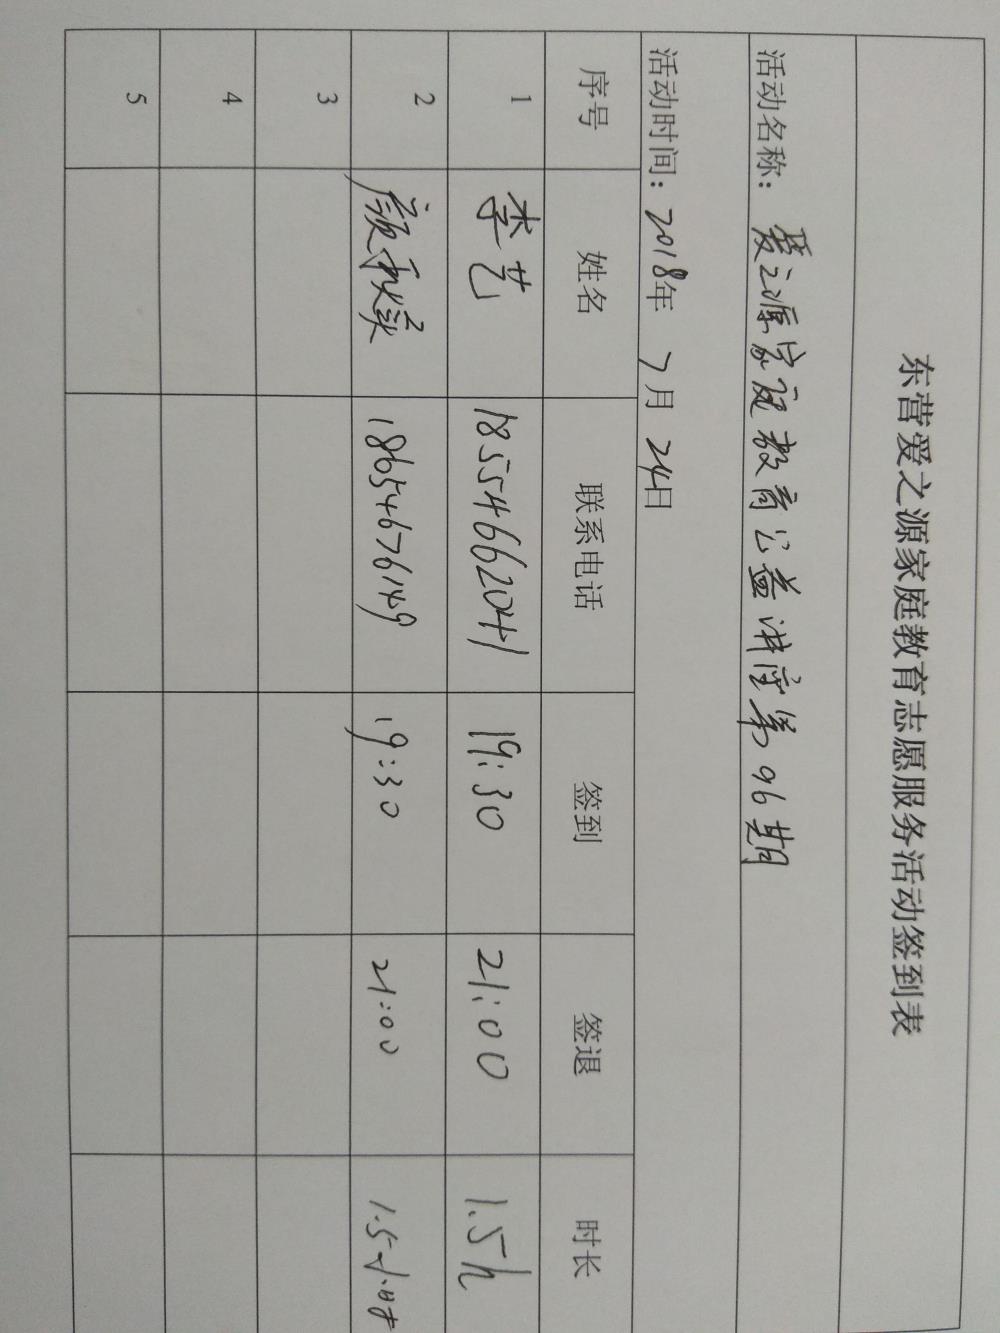 东营爱之源家庭教育志愿服务活动签到表
活动名称：爱之源家庭教育公益讲座第96期
活动时间：2018年 7月 24日
序号 姓名 联系电话 签到 签退 时长
1 李艺 18554662041 19:30 21:00 1.5h
2 颜 18654676149 19:30 21:00 1.5小时
3
4
5